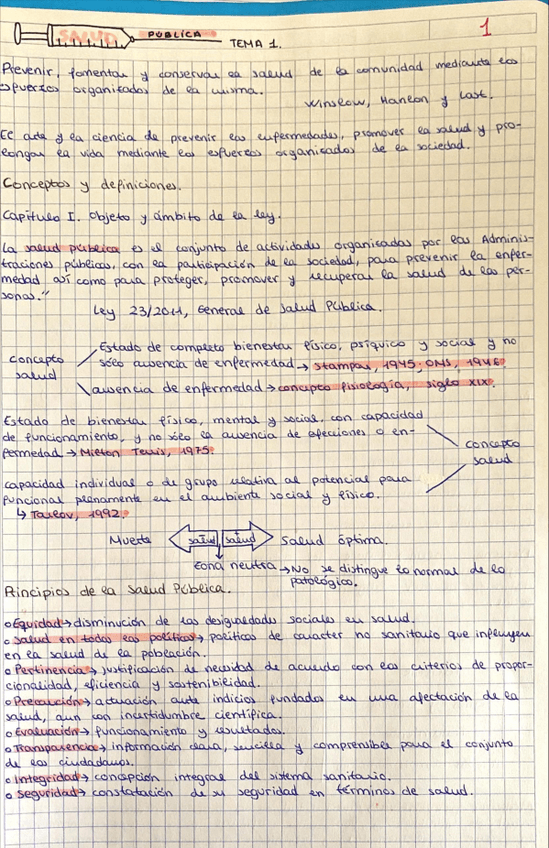 1
SALUD PÚBLICA TEMA 1.
Prevenir, fomentar y conservar la salud de la comunidad mediante los
esfuerzos organizados de la misma.
Winslow, Hanlon y Last.
El arte y la ciencia de prevenir las enfermedades, promover la salud y pro-
longar la vida mediante los esfuerzos organizados de la sociedad.
Conceptos y definiciones.
Capítulo I. Objeto y ámbito de la ley.
La salud pública es el conjunto de actividades organizadas por las Adminis-
traciones públicas, con la participación de la sociedad, para prevenir la enfer-
medad así como para proteger, promover y recuperar la salud de las per-
sonas."
Ley 23/2011, General de Salud Pública.
concepto salud
Estado de completo bienestar físico, psíquico y social y no
sólo ausencia de enfermedad → Stampar, 1945; OMS, 1946.
ausencia de enfermedad → concepto fisiología, siglo XIX.
Estado de bienestar físico, mental y social, con capacidad
de funcionamiento, y no sólo la ausencia de afecciones o en-
fermedad → Milton Terris, 1975.
concepto salud
capacidad individual o de grupo relativa al potencial para
funcional plenamente en el ambiente social y físico.
↳ Tarlov, 1992.
Muerte salud salud Salud óptima.
zona neutra → No se distingue lo normal de lo
patológico.
Principios de la Salud Pública.
o Equidad → disminución de las desigualdades sociales en salud.
o Salud en todas las políticas → políticas de caracter no sanitario que influyen
en la salud de la población.
o Pertinencia → justificación de necesidad de acuerdo con los criterios de propor-
cionalidad, eficiencia y sostenibilidad.
o Precaución → actuación ante indicios fundados en una afectación de la
salud, aun con incertidumbre científica.
o Evaluación → funcionamiento y resultados.
o Transparencia → información clara, sencilla y comprensible para el conjunto
de los ciudadanos.
o Integridad → concepción integral del sistema sanitario.
o Seguridad → constatación de su seguridad en términos de salud.